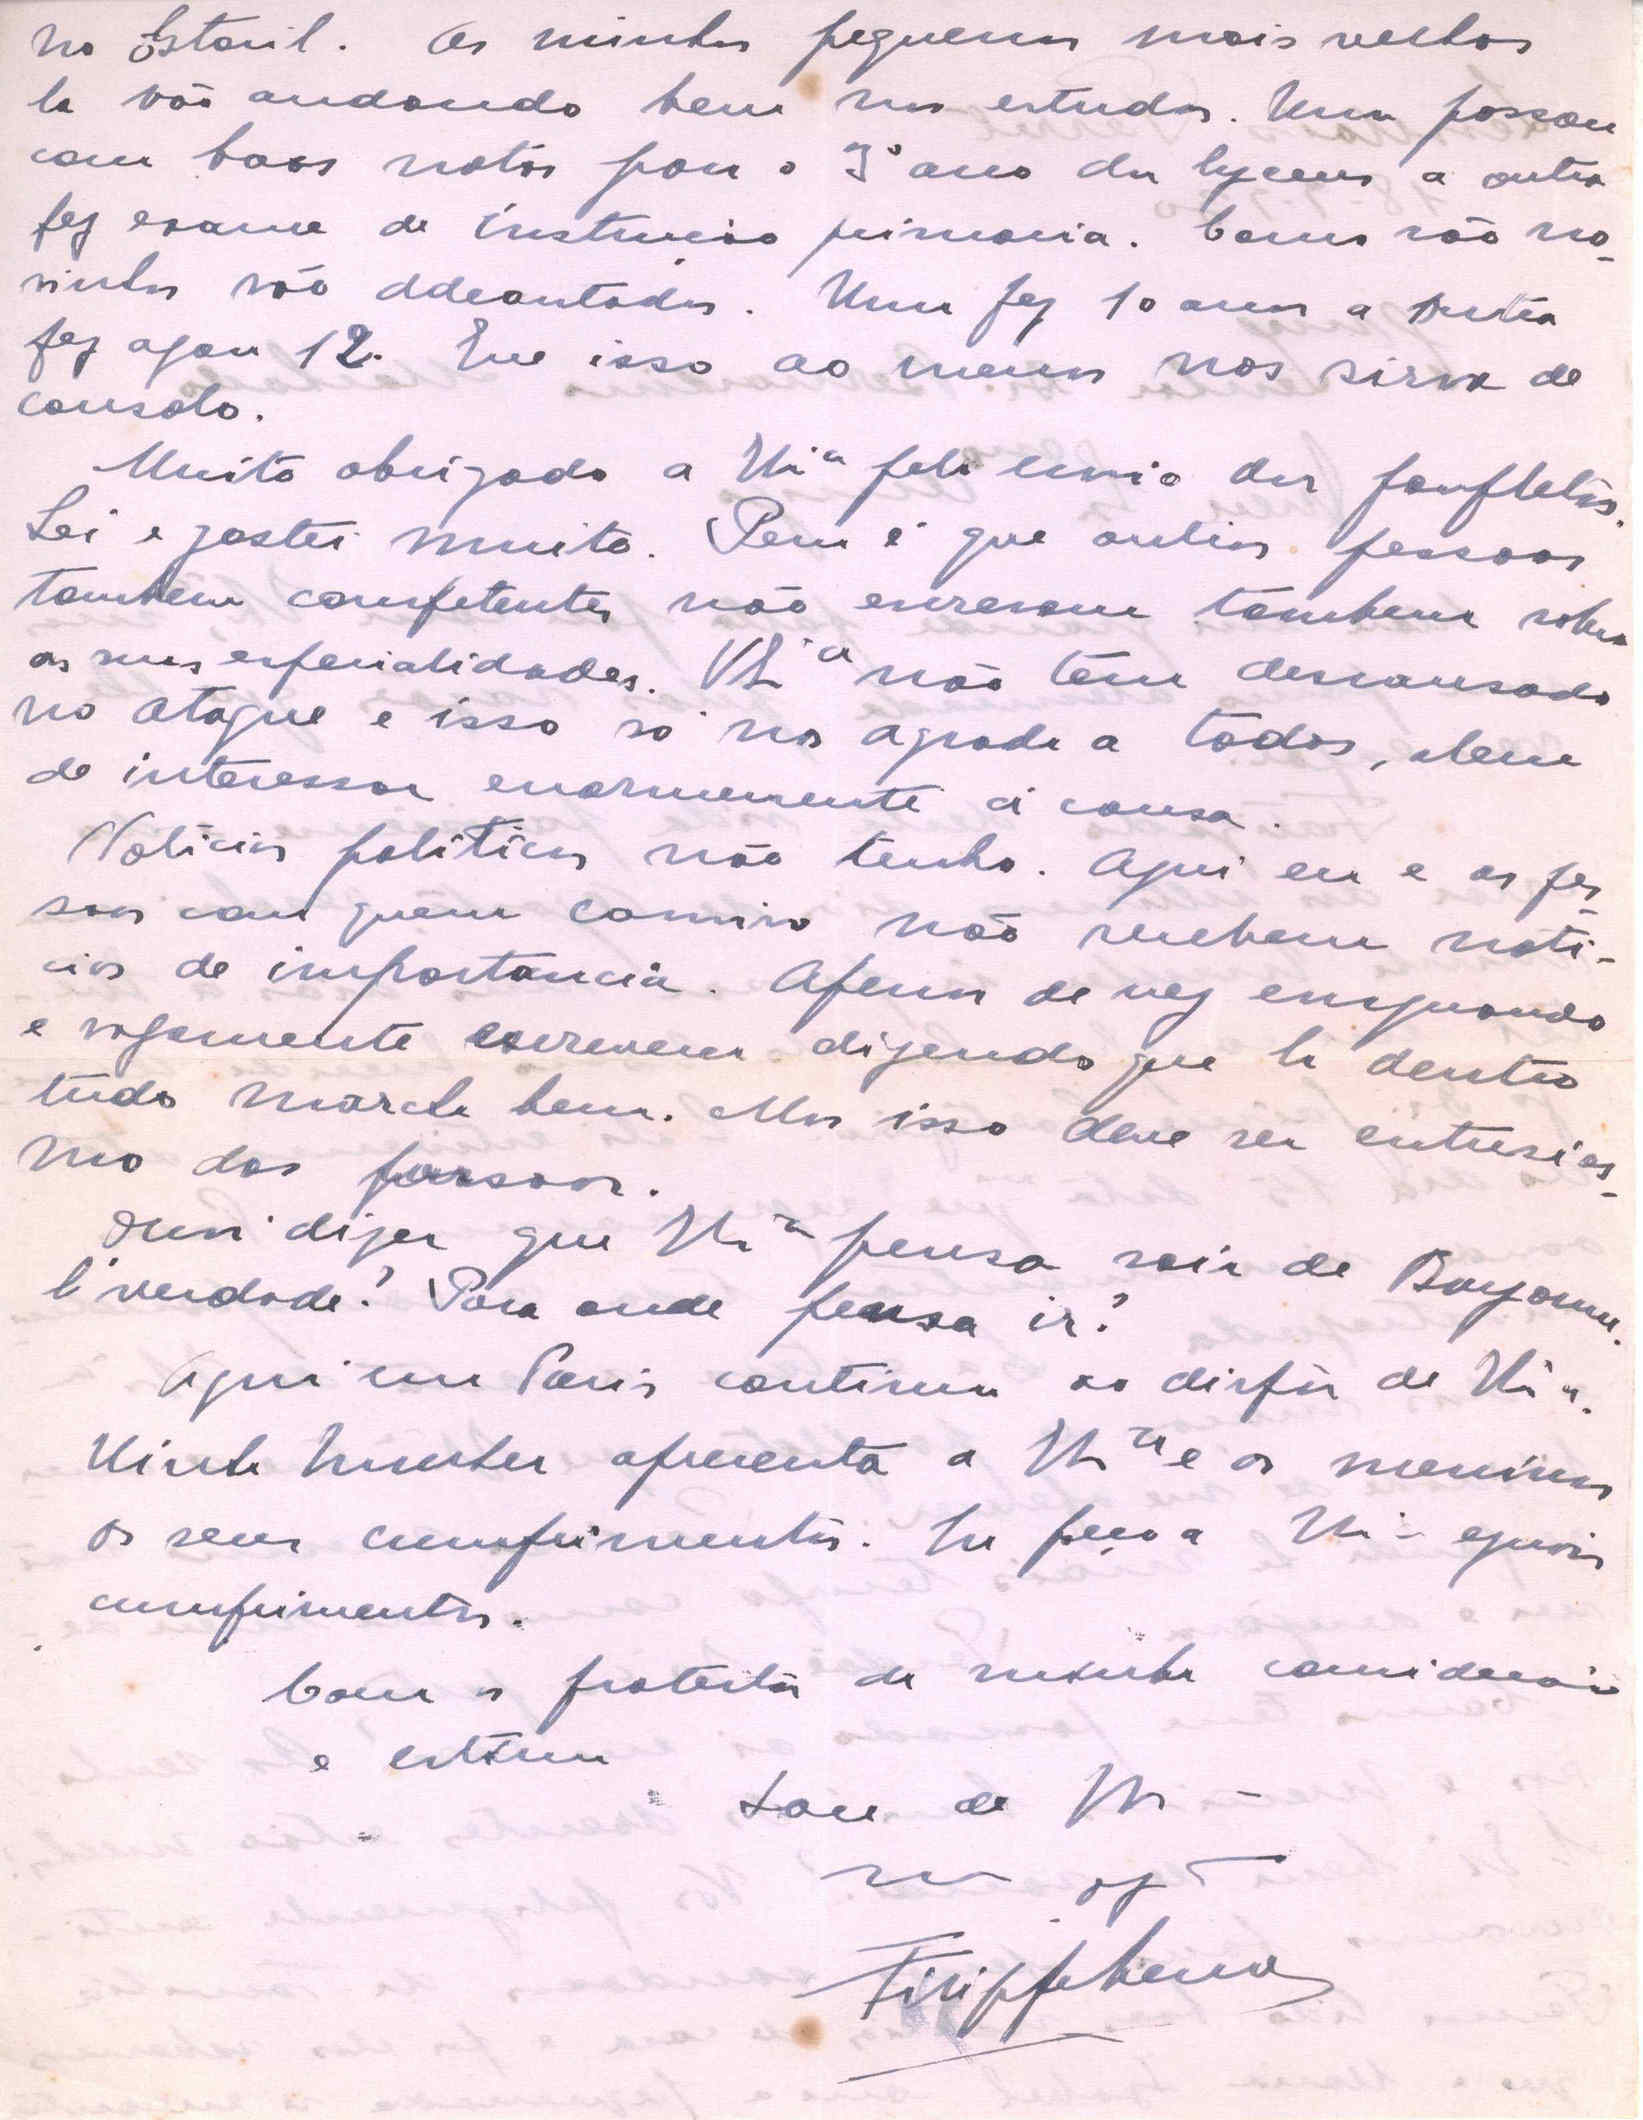 no Estoril. Os minhos pequenos mais velhos
la vão andando bem nos estudos. Um passou
com boas notas para o 3º ano do lyceu e outro
fez exame de instrução primaria. Como são no-
vinhos vão adeantados. Um fez 10 anos e outro
fez agora 12. Que isso ao menos nos sirva de
consolo.
Muito obrigado a V. Exª pelo envio dos panfletos.
Lei e gostei muito. Pena é que outras pessoas
tambem competentes não escrevam tambem sobre
as suas especialidades. V. Exª não têm descansado
no ataque e isso só nos agrada a todos, alem
de interessar enormemente á causa.
Noticias politicas não tenho. Aqui eu e as pes-
soas com quem convivo não recebem noti-
cias de importancia. Apenas de vez enquando
e vagamente escrevem dizendo que la dentro
tudo marcha bem. Mas isso deve ser entusias-
mo das pessoas.
Ouvi dizer que V. Exª pensa sair de Bayonne.
É verdade? Para onde pensa ir?
Aqui em Paris continuo ao dispôr de V. Exª.
Minha mulher apresenta a V. Exª e os meninos
os seus cumprimentos. Eu peço a V. Exª eguais
cumprimentos.
Com os protestos da minha consideração
e estima
Sou de V. Exª